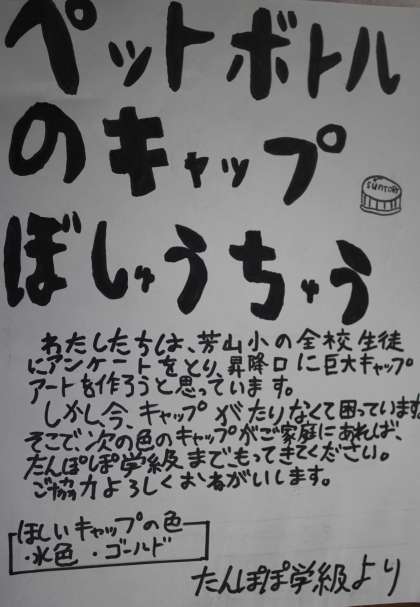 ペットボトル
のキャップ
SUNTORY
ぼしゅうちゅう
わたしたちは、芳山小の全校生徒
にアンケートをとり、昇降口に巨大キャップ
アートを作ろうと思っています。
しかし今、キャップがたりなくて困っています。
そこで、次の色のキャップがご家庭にあれば、
たんぽぽ学級まで、もってきてください。
ご協力よろしくおねがいします。
ほしいキャップの色
・水色 ・ゴールド
たんぽぽ学級より